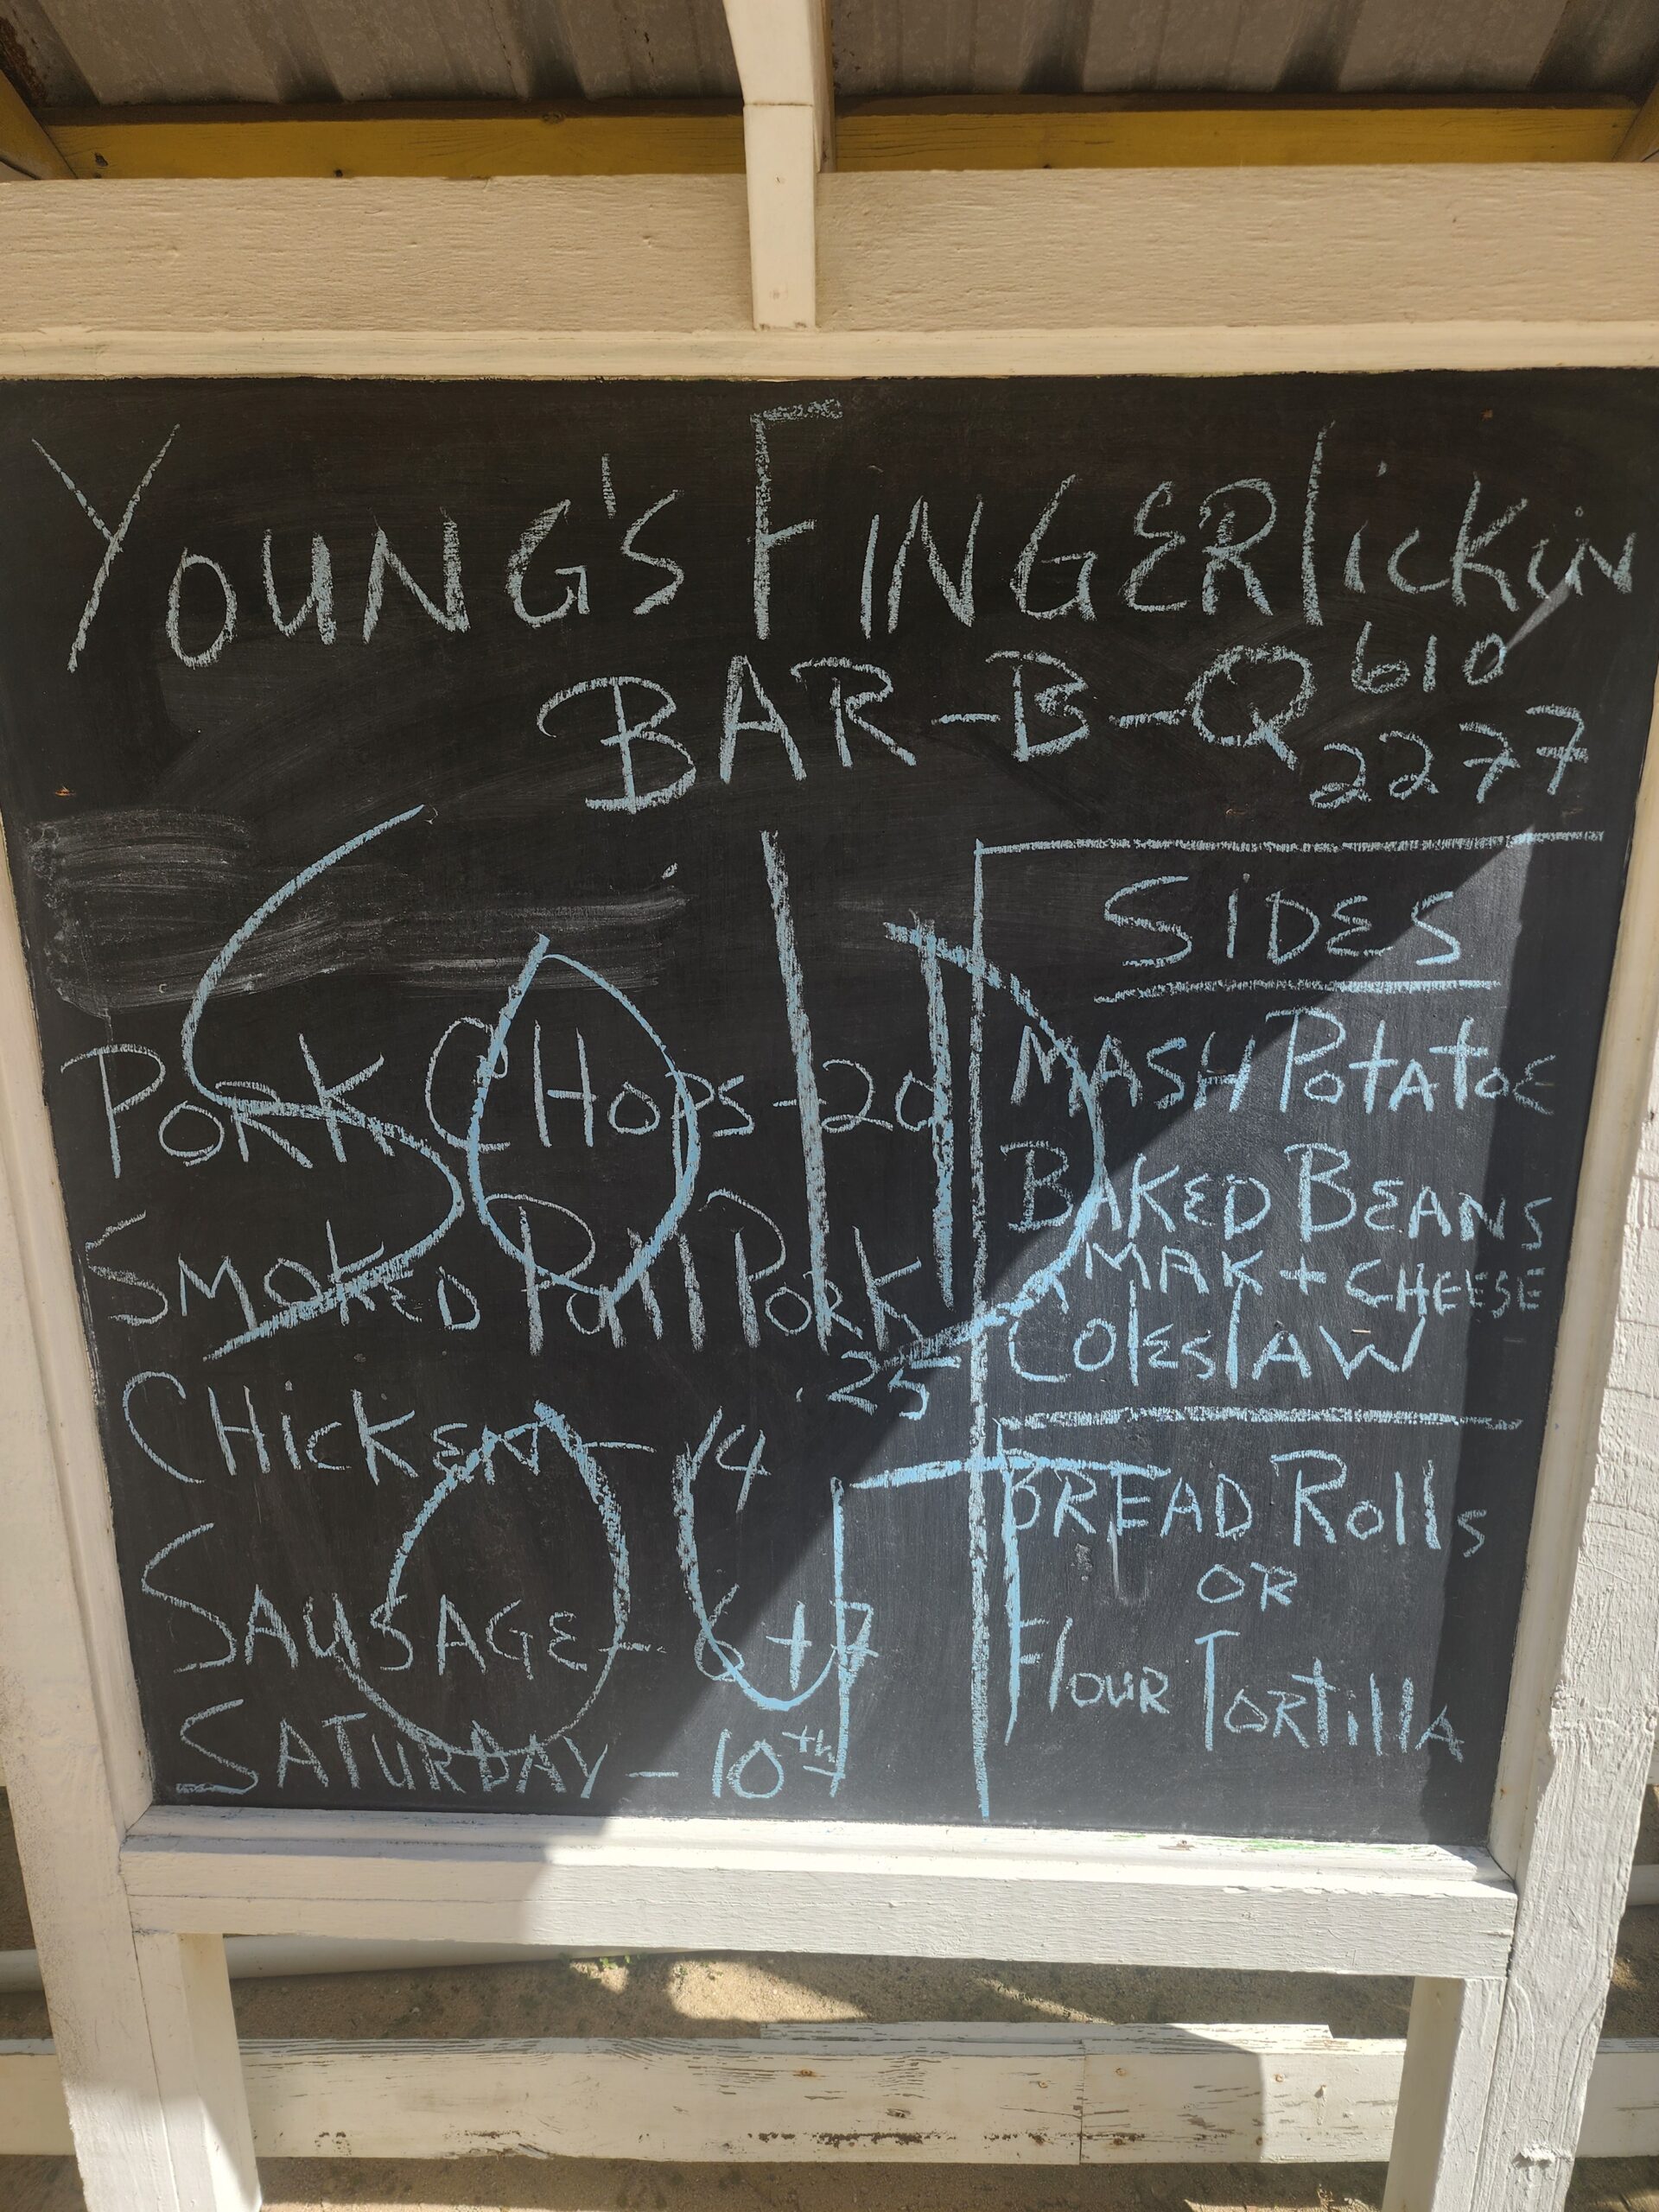 YOUNG'S FINGERlickiN
BAR-B-Q
610
2277
SOlD
OUT
PORK CHOPS - 20
SMOKED Pull PORK
25
CHicKEN - 14
SAUSAGE - 6+7
SATURDAY - 10th
SiDES
MASH POtAtOE
BAKED BEANS
MAK + CHEESE
COleslAW
BREAD Rolls
OR
Flour Tortilla